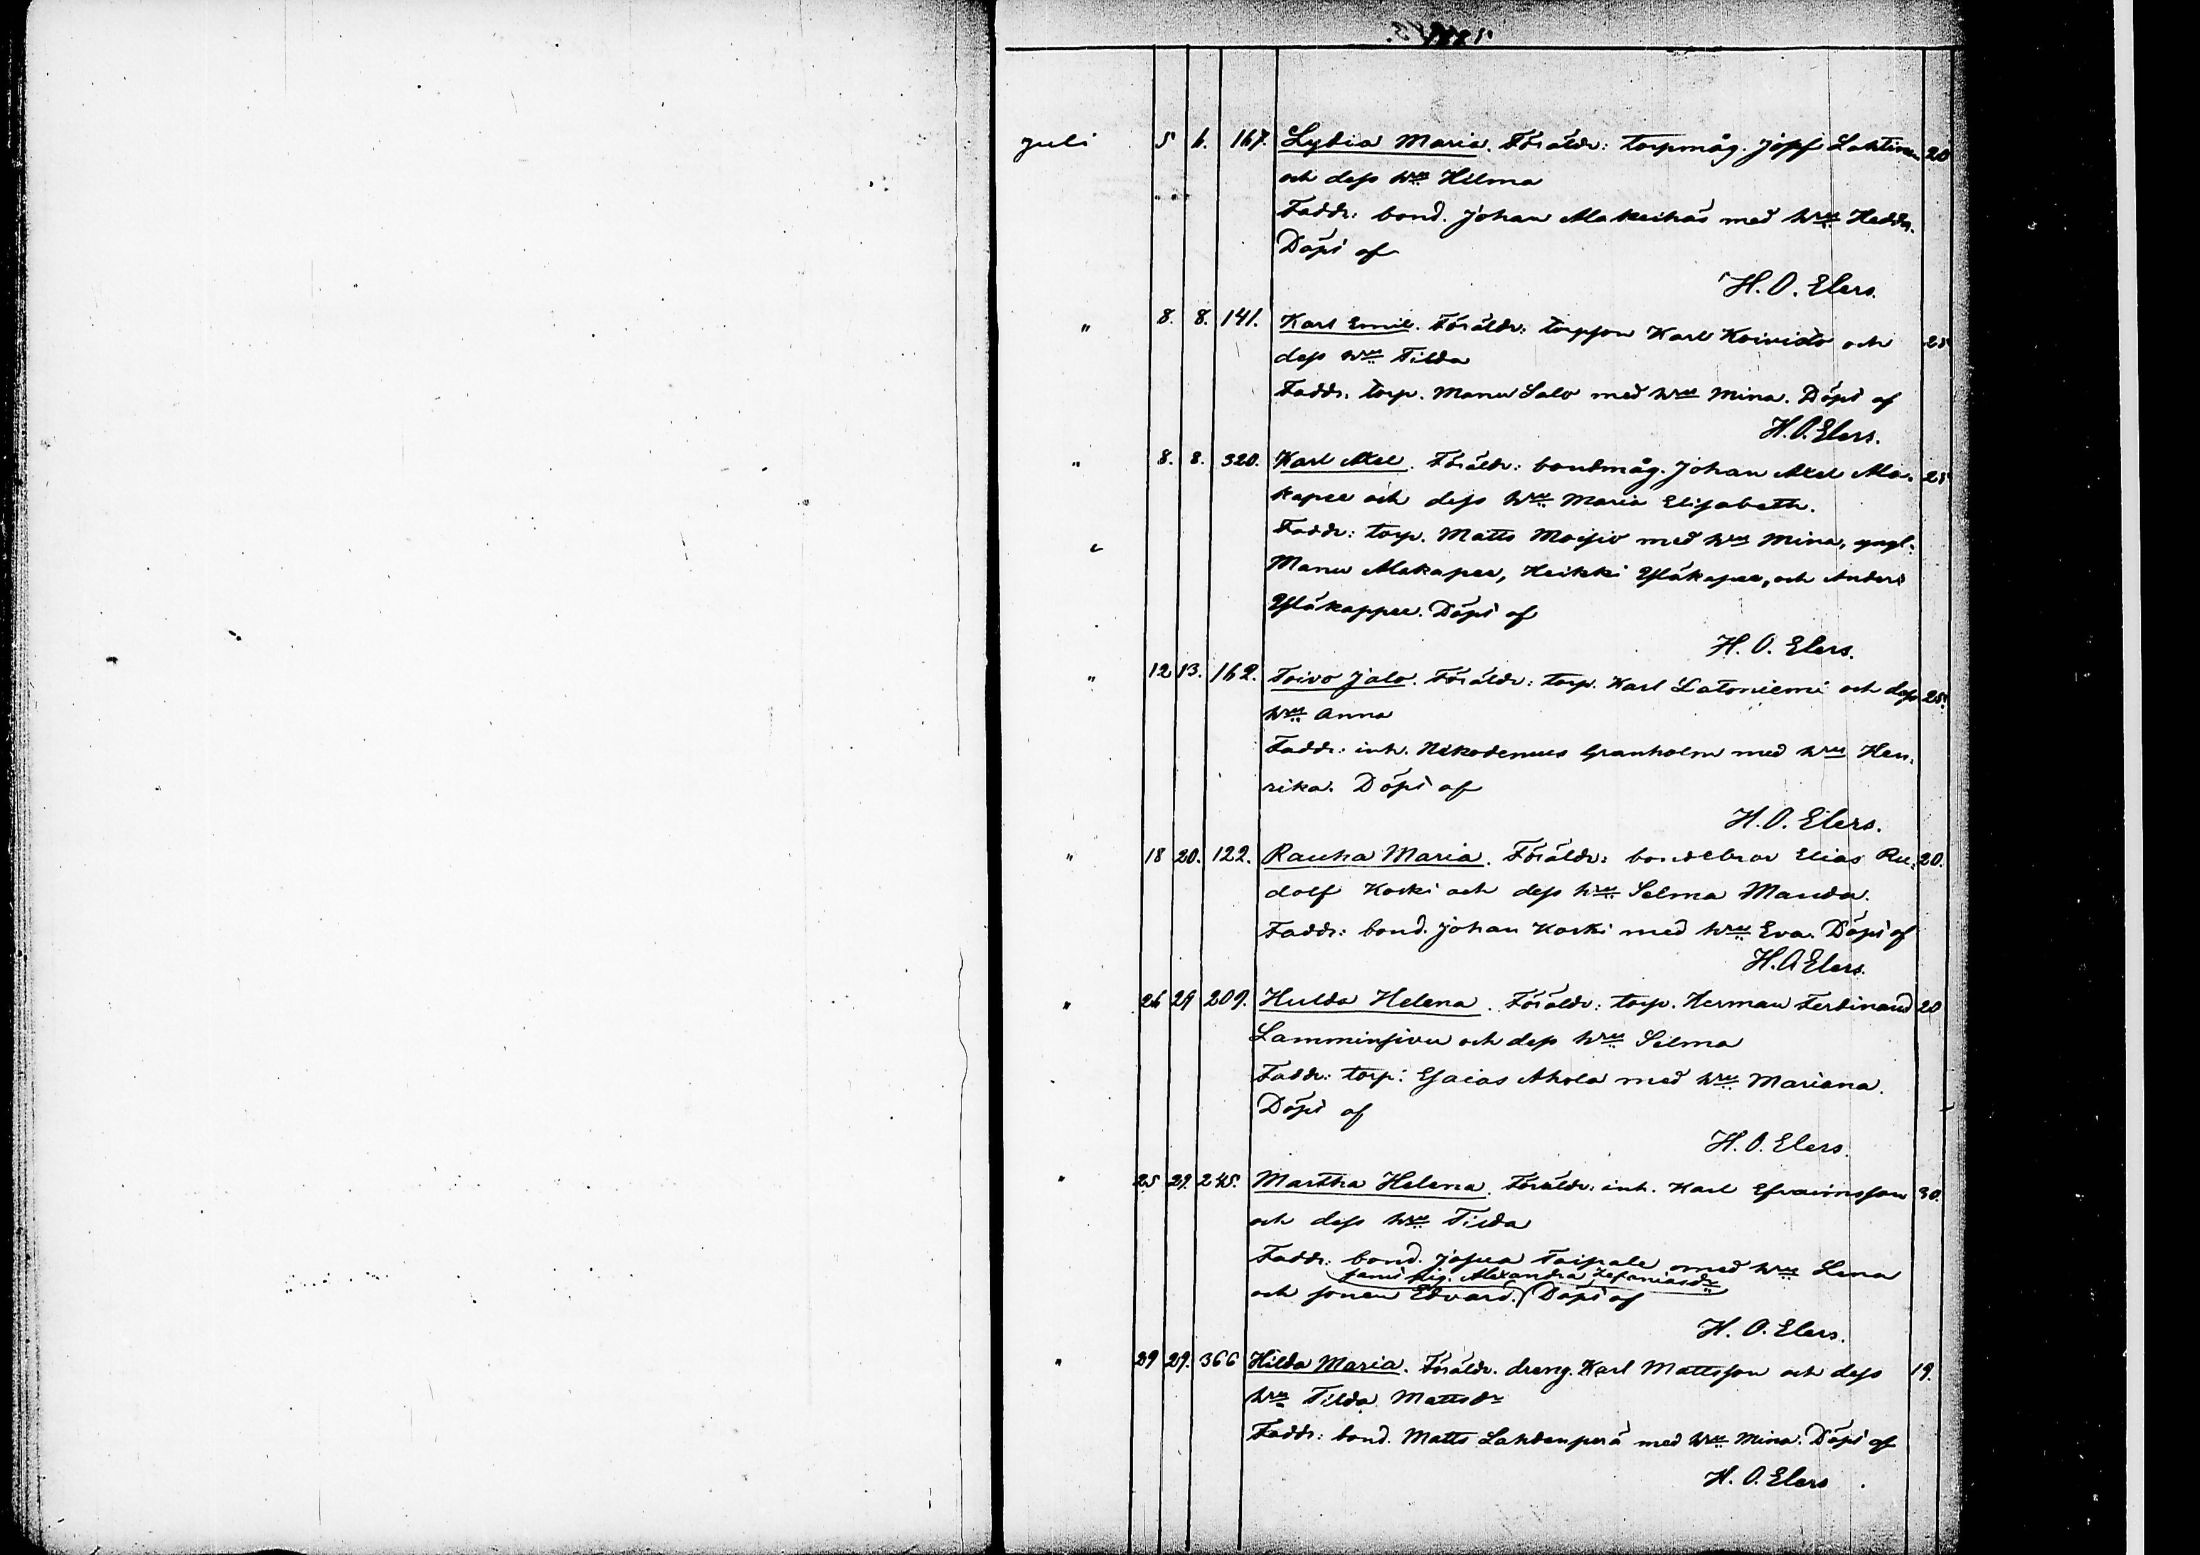 Juli 5 6. 167. Lydia Maria. Föräldr: torpmåg. Josef Lahtinen 20
och dess hru Hilma
Faddr: bond. Johan Makeihas med hru Hedda.
Döpt af
H. O. Elers.
" 8. 8. 141. Karl Emil. Föräldr: torpson Karl Koivisto och 25
dess hru Tilda
Faddr. torp. Manu Salo med hru Mina. Döpt af
H. O. Elers.
" 8. 8. 320. Karl Axel. Föräldr: bondmåg. Johan Axel Ala- 25
kapee och dess hru Maria Elisabeth.
Faddr: torp. Matts Moisio med hru Mina, yngl.
Manu Alakapee, Heikki Yläkapee, och Anders
Yläkappee. Döpt af
H. O. Elers.
" 12 13. 162. Toivo Jalo. Föräldr: torp. Karl Latoniemi och dess 25.
hru Anna
Faddr: inh. Nikodemus Granholm med hru Hen-
rika. Döpt af
H. O. Elers.
" 18 20. 122. Rauha Maria. Föräldr: bondebror Elias Ru- 20.
dolf Koski och dess hru Selma Manda.
Faddr: bond. Johan Koski med hru Eva. Döpt af
H. O Elers.
" 26 29 209. Hulda Helena. Föräldr: torp. Herman Ferdinand 20
Lamminsivu och dess hru Selma
Faddr: torp: Esaias Ahola med hru Mariana.
Döpt af
H. O. Elers.
" 25 29. 245. Martha Helena. Föräldr. inh. Karl Efraimsson 30.
och dess hru Tilda
Faddr: bond. Josua Taipale med hru Lena
samt pig. Alexandra Zefaniasdr
och sonen Edvard. Döpt af
H. O. Elers.
" 29 29. 366 Hilda Maria. Föräldr. dreng. Karl Mattsson och dess 19.
hru Tilda Mattsdr
Faddr: bond. Matts Lahdenperä med hru Mina. Döpt af
H. O. Elers